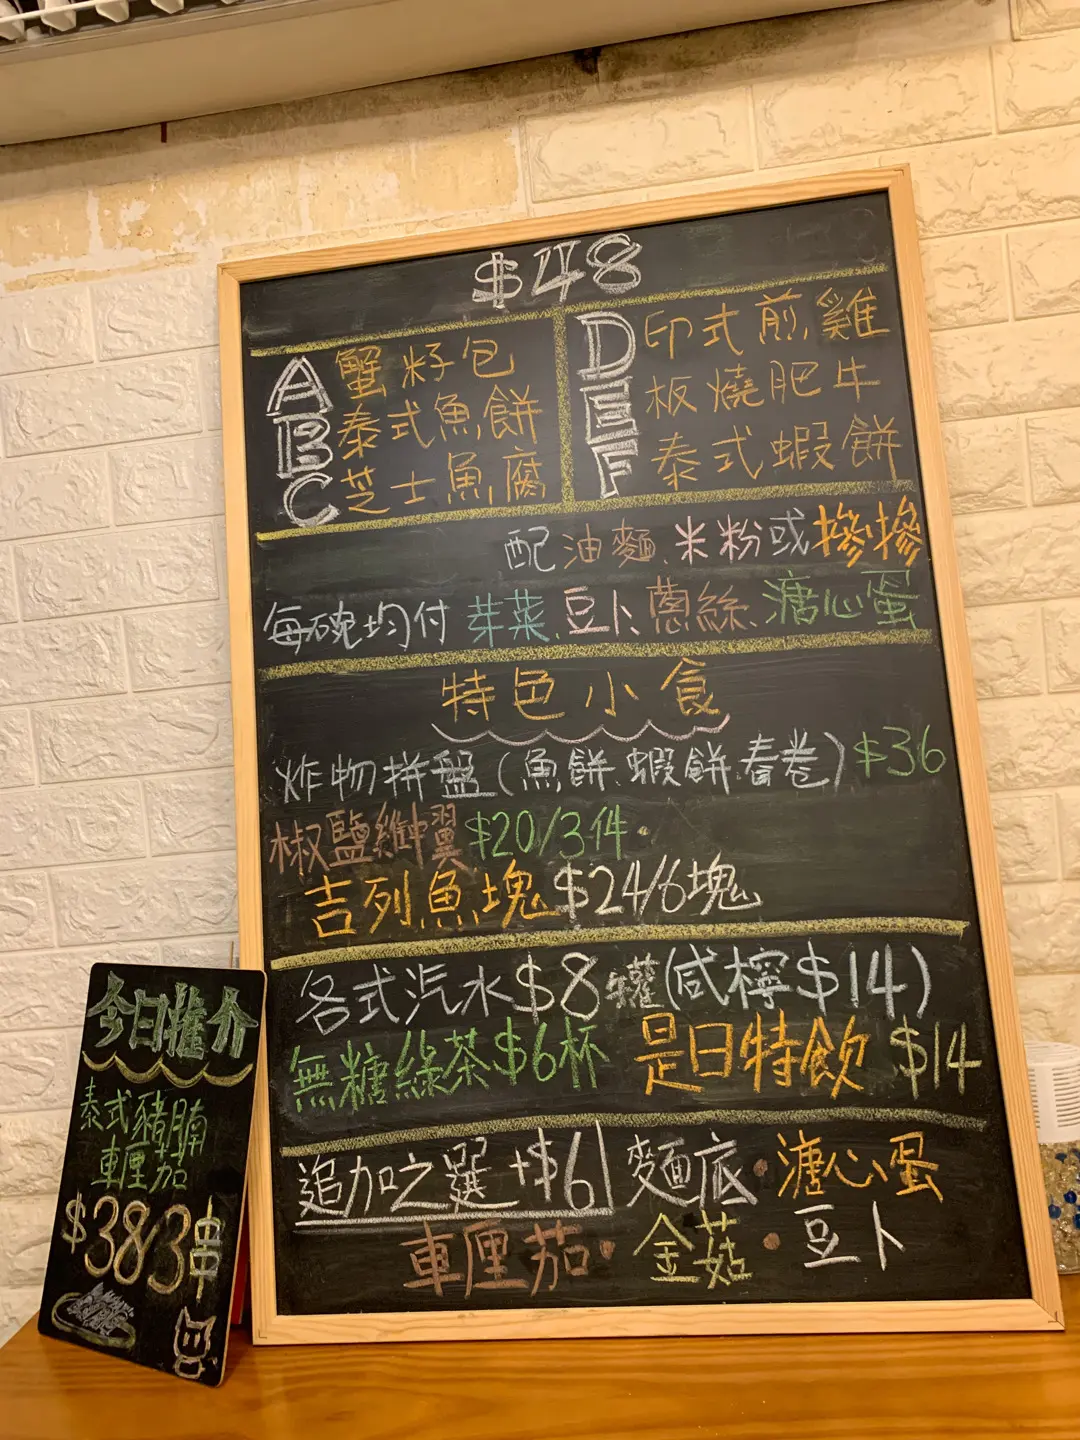 $48
A 蟹籽包
B 泰式魚餅
C 芝士魚腐
D 印式煎雞
E 板燒肥牛
F 泰式蝦餅
配油麵、米粉或摻摻
每碗均付芽菜、豆卜、蔥絲、溏心蛋
特色小食
炸物拼盤(魚餅、蝦餅、春卷)$36
椒鹽雞中翼$20/3件・
吉列魚塊$24/6塊
各式汽水$8罐(咸檸$14)
無糖綠茶$6杯 是日特飲 $14
追加之選+$6 麵底・溏心蛋
車厘茄・金菇・豆卜
今日推介
泰式豬腩
車厘茄
$38/3串